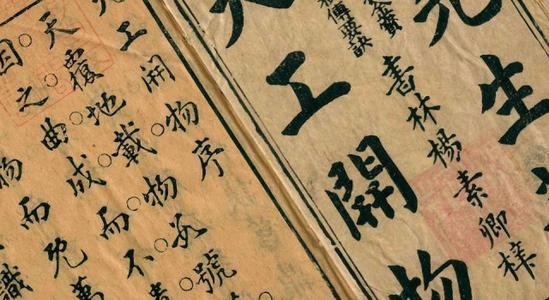 先生
書林楊素卿梓
天工開物
天工開物序
天覆地載物数號
因之曲成而不
物而既萬
識